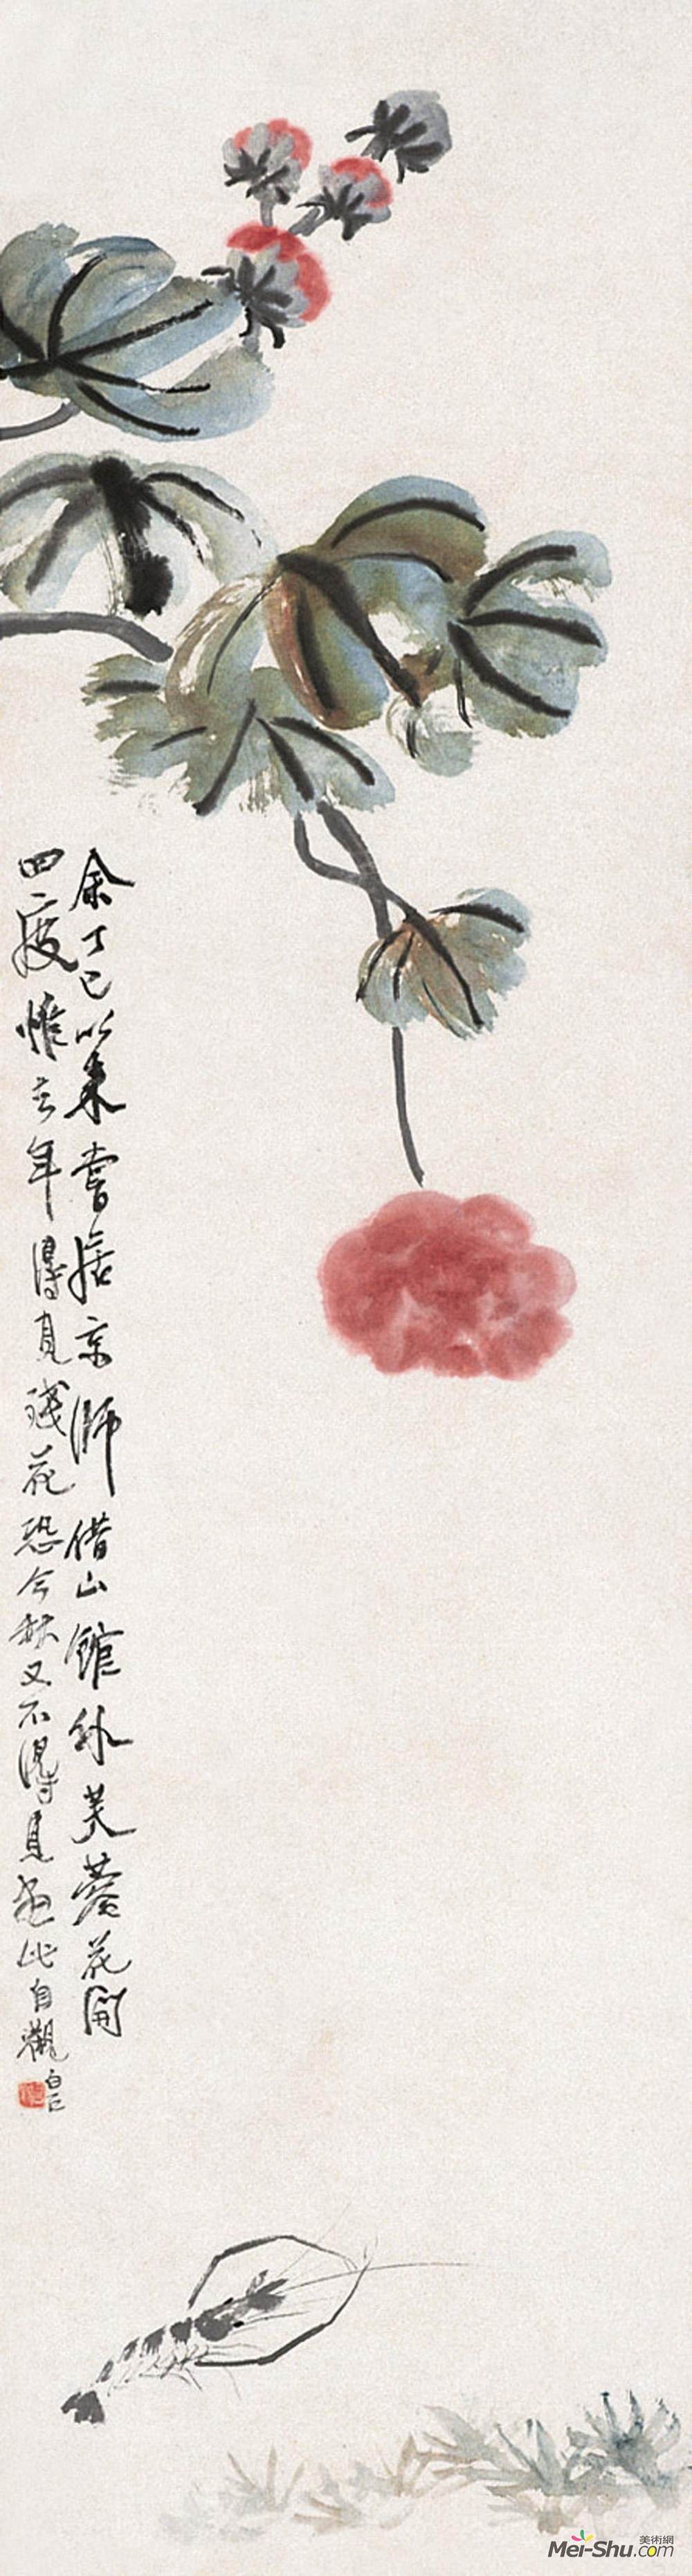 余丁巳以来尝居京師借山館外芙蓉花開
四度惟去年得見殘花恐今秋又不得見畫此自觀
白石
美術網
Mei-Shu.com